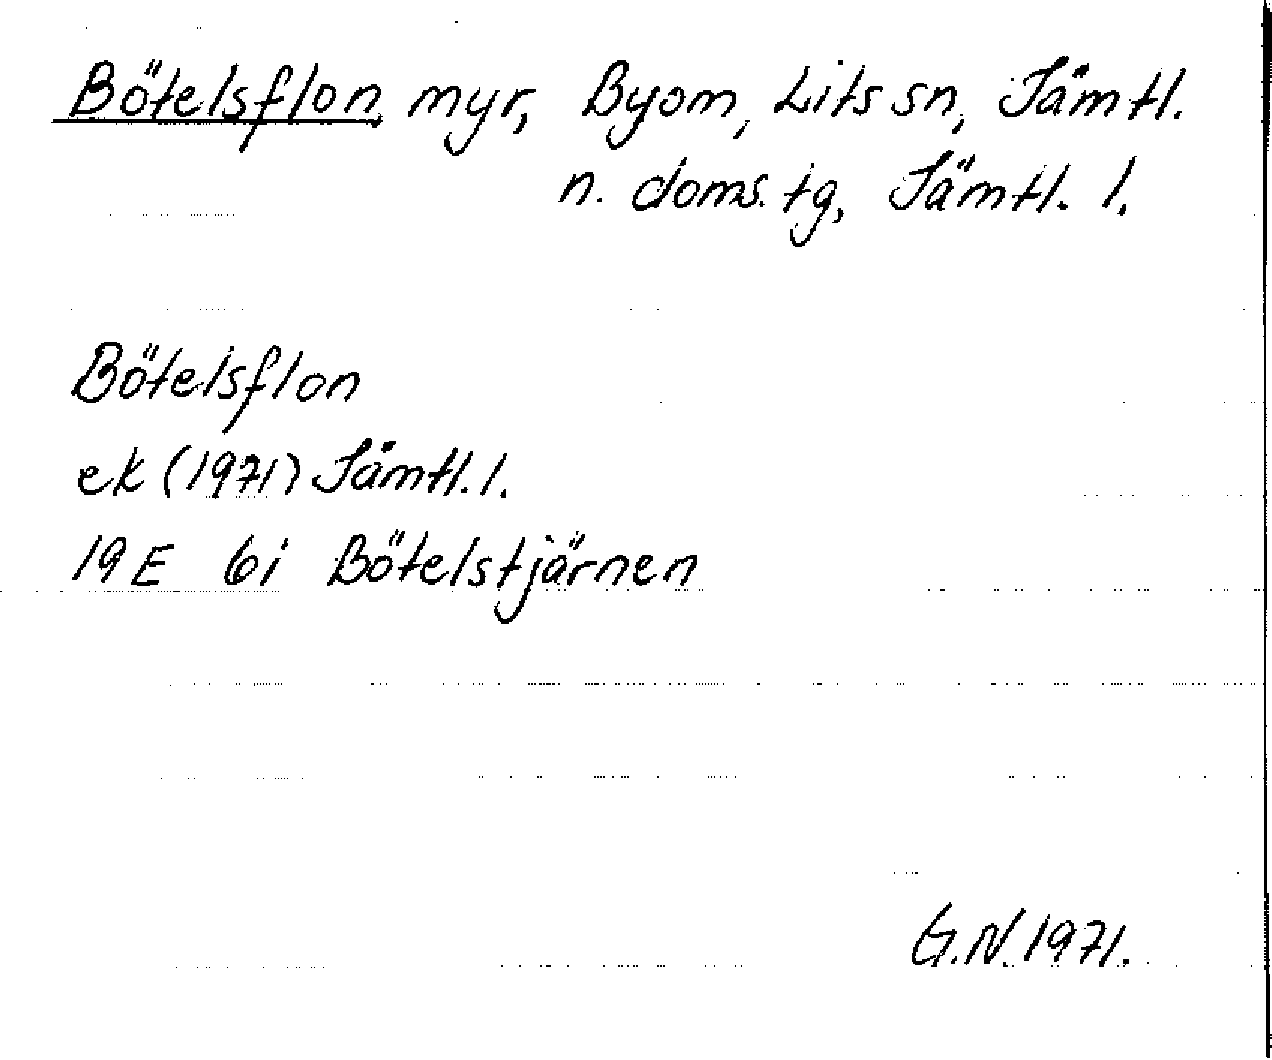 Bötelsflon, myr, Byom, Lits sn, Jämtl.
n. doms. tg, Jämtl. l.
Bötelsflon
ek (1971) Jämtl. l.
19 E 6i Bötelstjärnen
G.N. 1971.